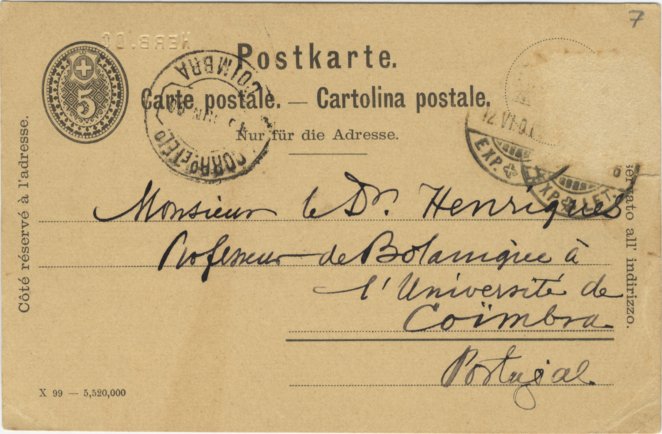 7
HERB. DO
Postkarte.
5
Carte postale. — Cartolina postale.
Nur für die Adresse.
COIMBRA
CORRº E TELº
EXP.
EXP. LET.
Côté réservé à l'adresse.
all' indirizzo.
Monsieur le Dr. Henriques
Professeur de Botanique à
l'Université de
Coïmbra
Portugal.
X 99 — 5,520,000